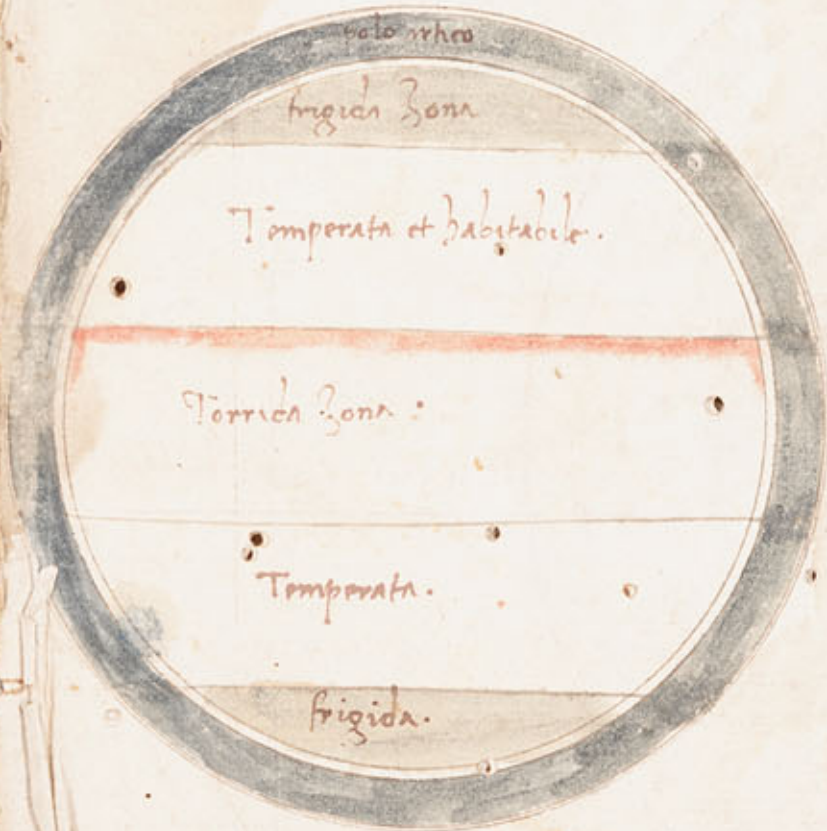 polo artico
frigida Zona
Temperata et habitabile.
Torrida Zona.
Temperata.
frigida.